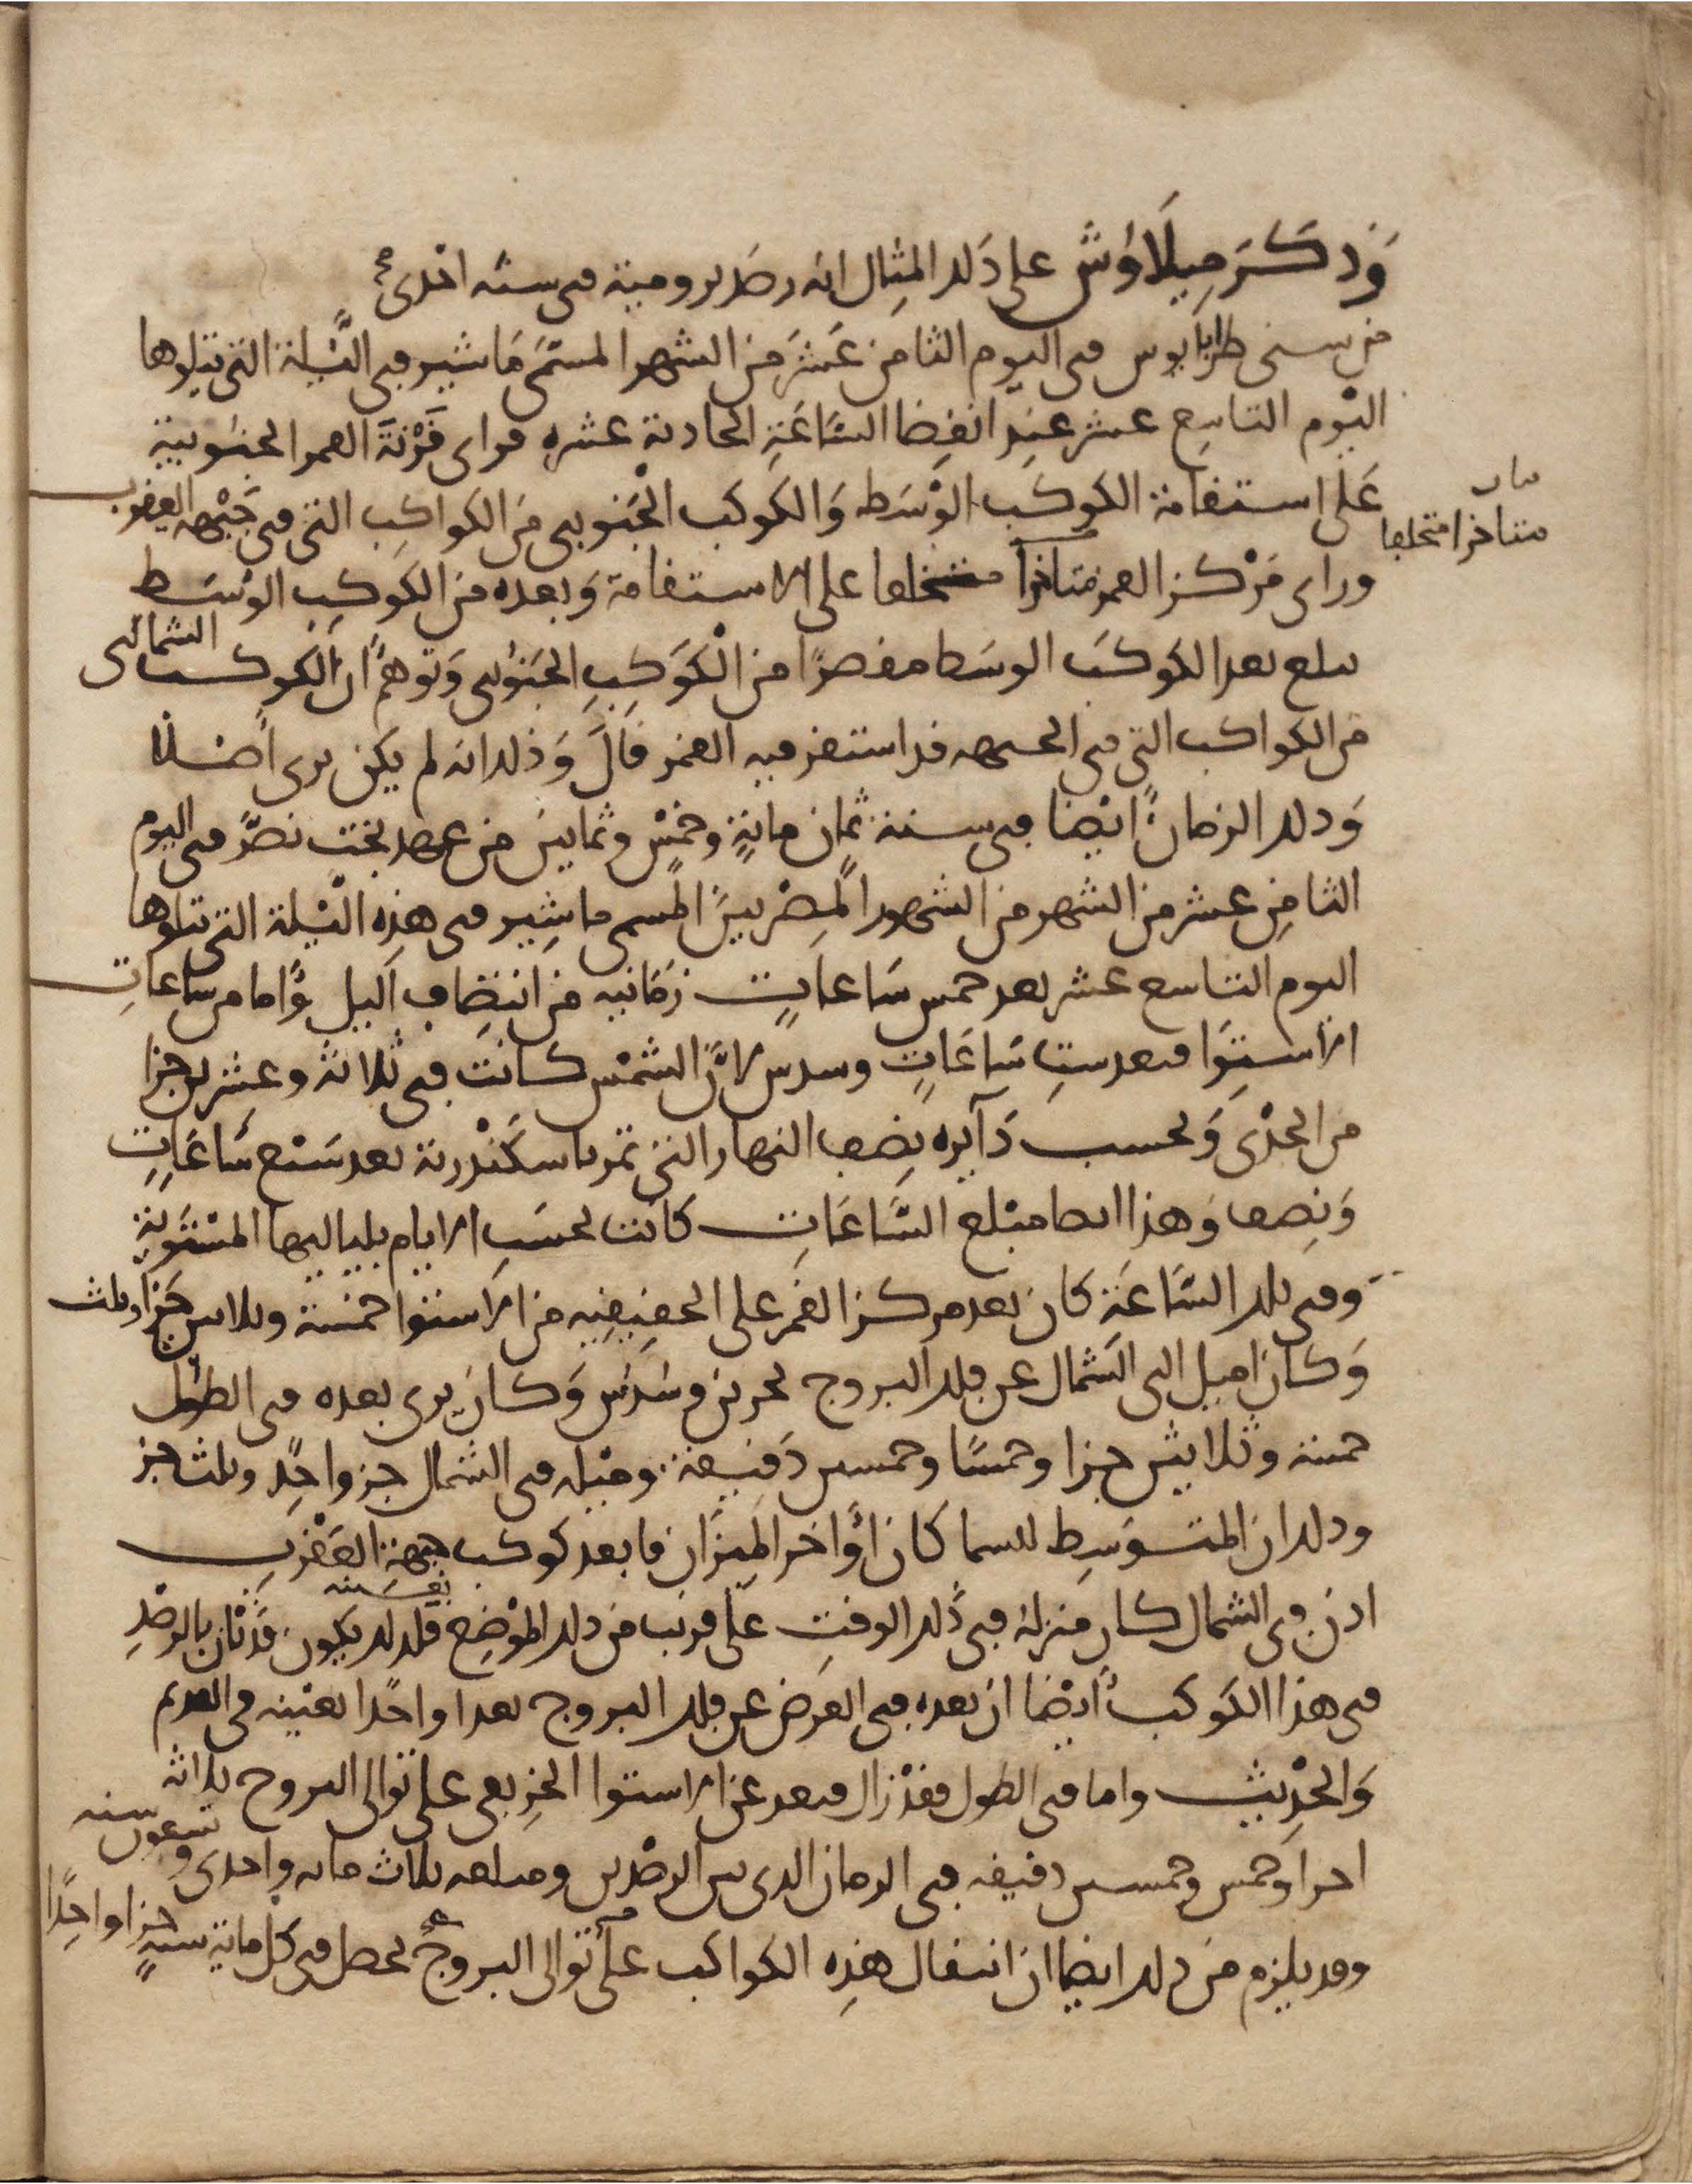 وَذكَرَ مِيلَاوُش على ذلك المِثال انه رصد برومية في سنه احدى
من سنى طرابابوس في اليوم الثامن عَشَرَ من الشهر المسَمّى مَاشير في اللَّيلة التى يتلوها
اليَوم التاسِع عشر عند انقضا السَّاعَةِ الحادية عشره فراى قَرْنَةَ القمر الجنُوبية
عَلى استقامة الكوكب الوَسَط وَالكوكب الجنوبي من الكواكِب التى في جَبْهه العقرب
متاخرا متخلفا
وراى مَرْكز القمر متاخراً متخلفا على الاستقامة وَبعده من الكوكِب الوسَط
مبلغ بعد الكوكَب الوسَط مقصرًا من الْكَوَكِبِ الجنوبي وَتوهم ان الكوكب الشمالى
من الكواكب التى في الجبهه قد استقر فيه القمر قالَ وَذلك انه لم يكن يرى اصلًا
وَذلك الزمان ايْضا في سنة ثمان ماية وخمْسٍ وثمانين من عهد بخت نصّر في اليوم
الثامِن عشر من الشهر من الشهور المِصْريين المسمى ماشِير في هذه اللّيلة التى يتلوها
اليوم التاسع عشر بعد خمس سَاعاتٍ زمَانيه من انتِصَاف الَّيل وَاما من ساعاتِ
الاستِوَا فبعد ستِ سَاعَاتٍ وسدس لانَّ الشمْس كانت في ثلاثة وعشرين جزا
من الجدْى وَبحسب دَآيره نِصف النهار التى تمر باسكَنْدرية بعد سَبْع سَّاعَاتٍ
وَنِصف وَهذا ايضا مبْلغ السَّاعَاتِ كانت بحسَب الايام بلياليها المسْتَوِيةِ
وفي تلك السَّاعَة كان بعد مركز القمر على الحقيقيه من الاستوا خمسة وثلاثين جزا وثلث
وَكان اميل الى الشمال عن فلك البروج بجزين وسُدس وَكان يرى بعده في الطول
خمسة وثلاثين جزا وخمسًا وخمسين دَقيقة وميله في الشمال جز واحِد وثلث جز
وذلك ان المتوسِط للسما كان اوَاخر المِيزَان فابعد كوكب جبهة العَقْرب
اذن في الشمال كان منزله في ذلك الوقت على قرب من ذلك الموْضِع بعَينه فلذلك يكون قَدْ بان بالرصْدِ
في هذا الكوكب أيْضا ان بعده في العَرض عن فلك البروج بعدا واحدًا بعَينه في القديم
وَالحَدِيث واما في الطول فقدْ زال فبعد عن الاستوا الخرِيفى على توالى البروج ثلاثه
اجزا وخمس وخمسين دقيقه في الزمان الذى بين الرصْدين ومبلغه ثلاث مايه واحدى وتسعون سنه
وقد يلزم من ذلك ايضا ان انتقال هذِه الكواكب على توالى البروج يحصل في كل مايةِ سنةٍ جزا واحِدًا